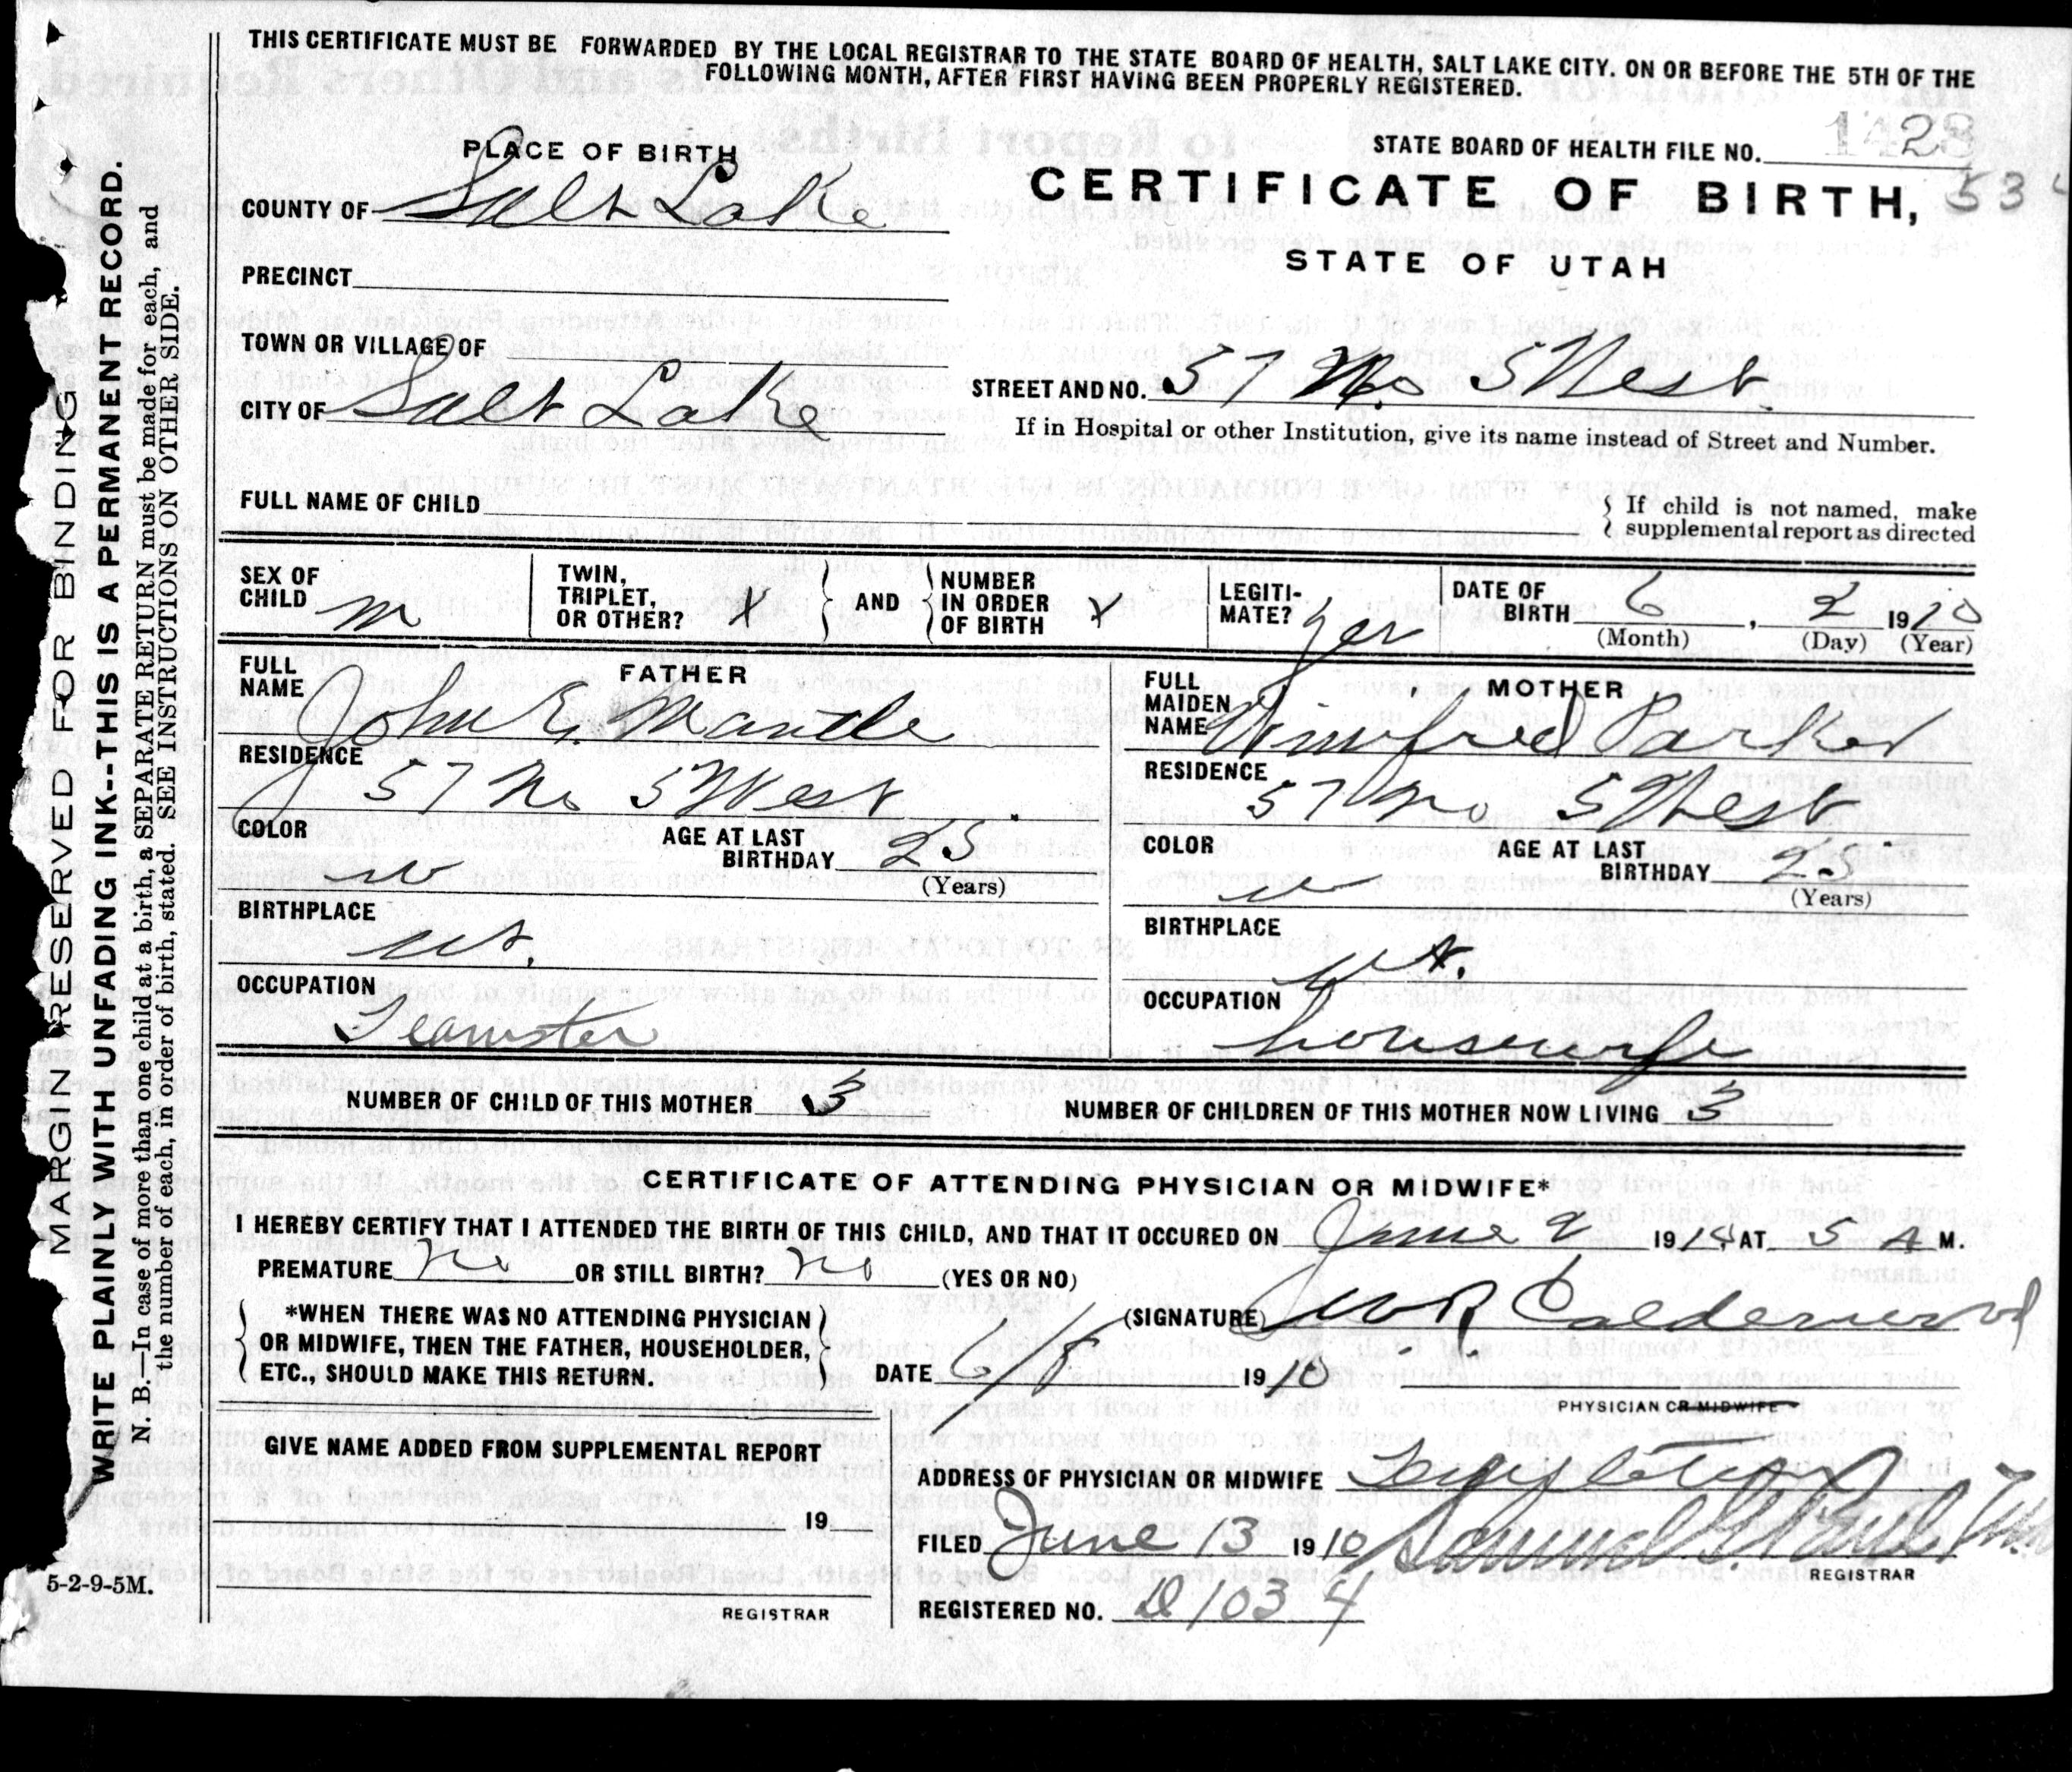 THIS CERTIFICATE MUST BE FORWARDED BY THE LOCAL REGISTRAR TO THE STATE BOARD OF HEALTH, SALT LAKE CITY. ON OR BEFORE THE 5TH OF THE
FOLLOWING MONTH, AFTER FIRST HAVING BEEN PROPERLY REGISTERED.
STATE BOARD OF HEALTH FILE NO. 1428
PLACE OF BIRTH
CERTIFICATE OF BIRTH, 534
COUNTY OF Salt Lake
STATE OF UTAH
PRECINCT
TOWN OR VILLAGE OF
STREET AND NO. 57 No 5 West
CITY OF Salt Lake
If in Hospital or other Institution, give its name instead of Street and Number.
FULL NAME OF CHILD
If child is not named, make
supplemental report as directed
SEX OF CHILD m
TWIN, TRIPLET, OR OTHER? X
AND
NUMBER IN ORDER OF BIRTH X
LEGITI-MATE? yes
DATE OF BIRTH 6, 2 1910
(Month) (Day) (Year)
FATHER
FULL NAME John E. Mantle
RESIDENCE 57 No 5 West
COLOR w
AGE AT LAST BIRTHDAY 25
(Years)
BIRTHPLACE ut.
OCCUPATION Teamster
MOTHER
FULL MAIDEN NAME Winifred Parker
RESIDENCE 57 No 5 West
COLOR w
AGE AT LAST BIRTHDAY 25
(Years)
BIRTHPLACE ut.
OCCUPATION housewife
NUMBER OF CHILD OF THIS MOTHER 3
NUMBER OF CHILDREN OF THIS MOTHER NOW LIVING 3
CERTIFICATE OF ATTENDING PHYSICIAN OR MIDWIFE*
I HEREBY CERTIFY THAT I ATTENDED THE BIRTH OF THIS CHILD, AND THAT IT OCCURED ON June 2 1910, AT 5 A M.
PREMATURE no OR STILL BIRTH? no (YES OR NO)
*WHEN THERE WAS NO ATTENDING PHYSICIAN
OR MIDWIFE, THEN THE FATHER, HOUSEHOLDER,
ETC., SHOULD MAKE THIS RETURN.
(SIGNATURE) W R Calderwood
DATE 6/8 1910
PHYSICIAN OR MIDWIFE
GIVE NAME ADDED FROM SUPPLEMENTAL REPORT
19
REGISTRAR
ADDRESS OF PHYSICIAN OR MIDWIFE Templeton
FILED June 13 1910 Samuel G. Paul
REGISTRAR
REGISTERED NO. D 1034
5-2-9-5M.
MARGIN RESERVED FOR BINDING
WRITE PLAINLY WITH UNFADING INK--THIS IS A PERMANENT RECORD.
N. B.—In case of more than one child at a birth, a SEPARATE RETURN must be made for each, and
the number of each, in order of birth, stated. SEE INSTRUCTIONS ON OTHER SIDE.